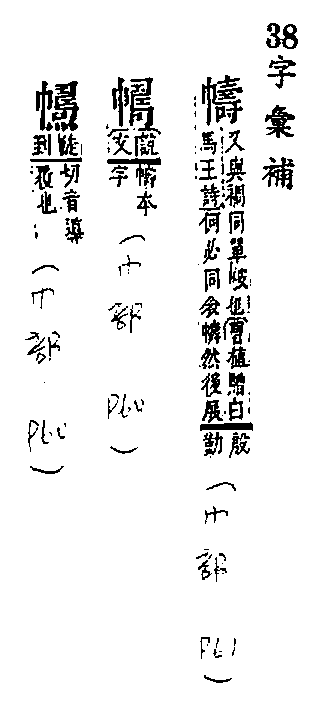 38字彙補
幬
又與裯同單帳也曹植贈白
馬王詩何必同衾幬然後展
殷勤
(巾部 P61)
說文
幬本
字
(巾部 P60)
徒到
切音導
覆也
(巾部 P60)